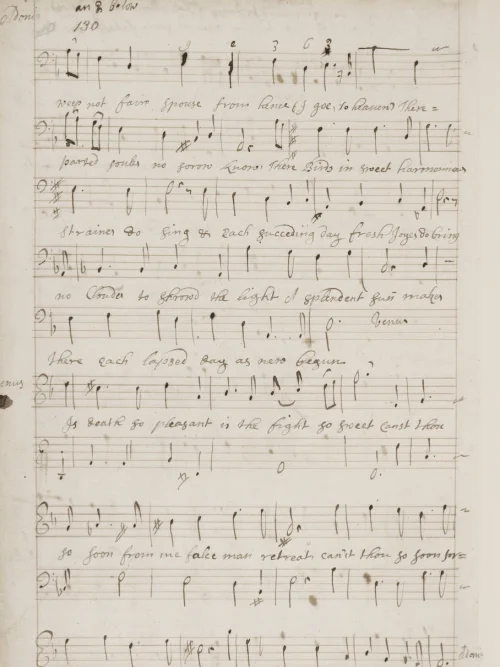 an 8 below
130
weep not fair spouse from hence (I goe, to heaven) There =
parted soules no sorow knows There Birds in sweet harmonious
Straines do sing & each succeeding day fresh Joyes do bring
no Clouds to shrowd the light of splendent sun makes
Venus
There each lapsed day as new begun
Venus
Is death so pleasant is the fight so sweet canst thou
so soon from me false man retreat can't thou so soon for=